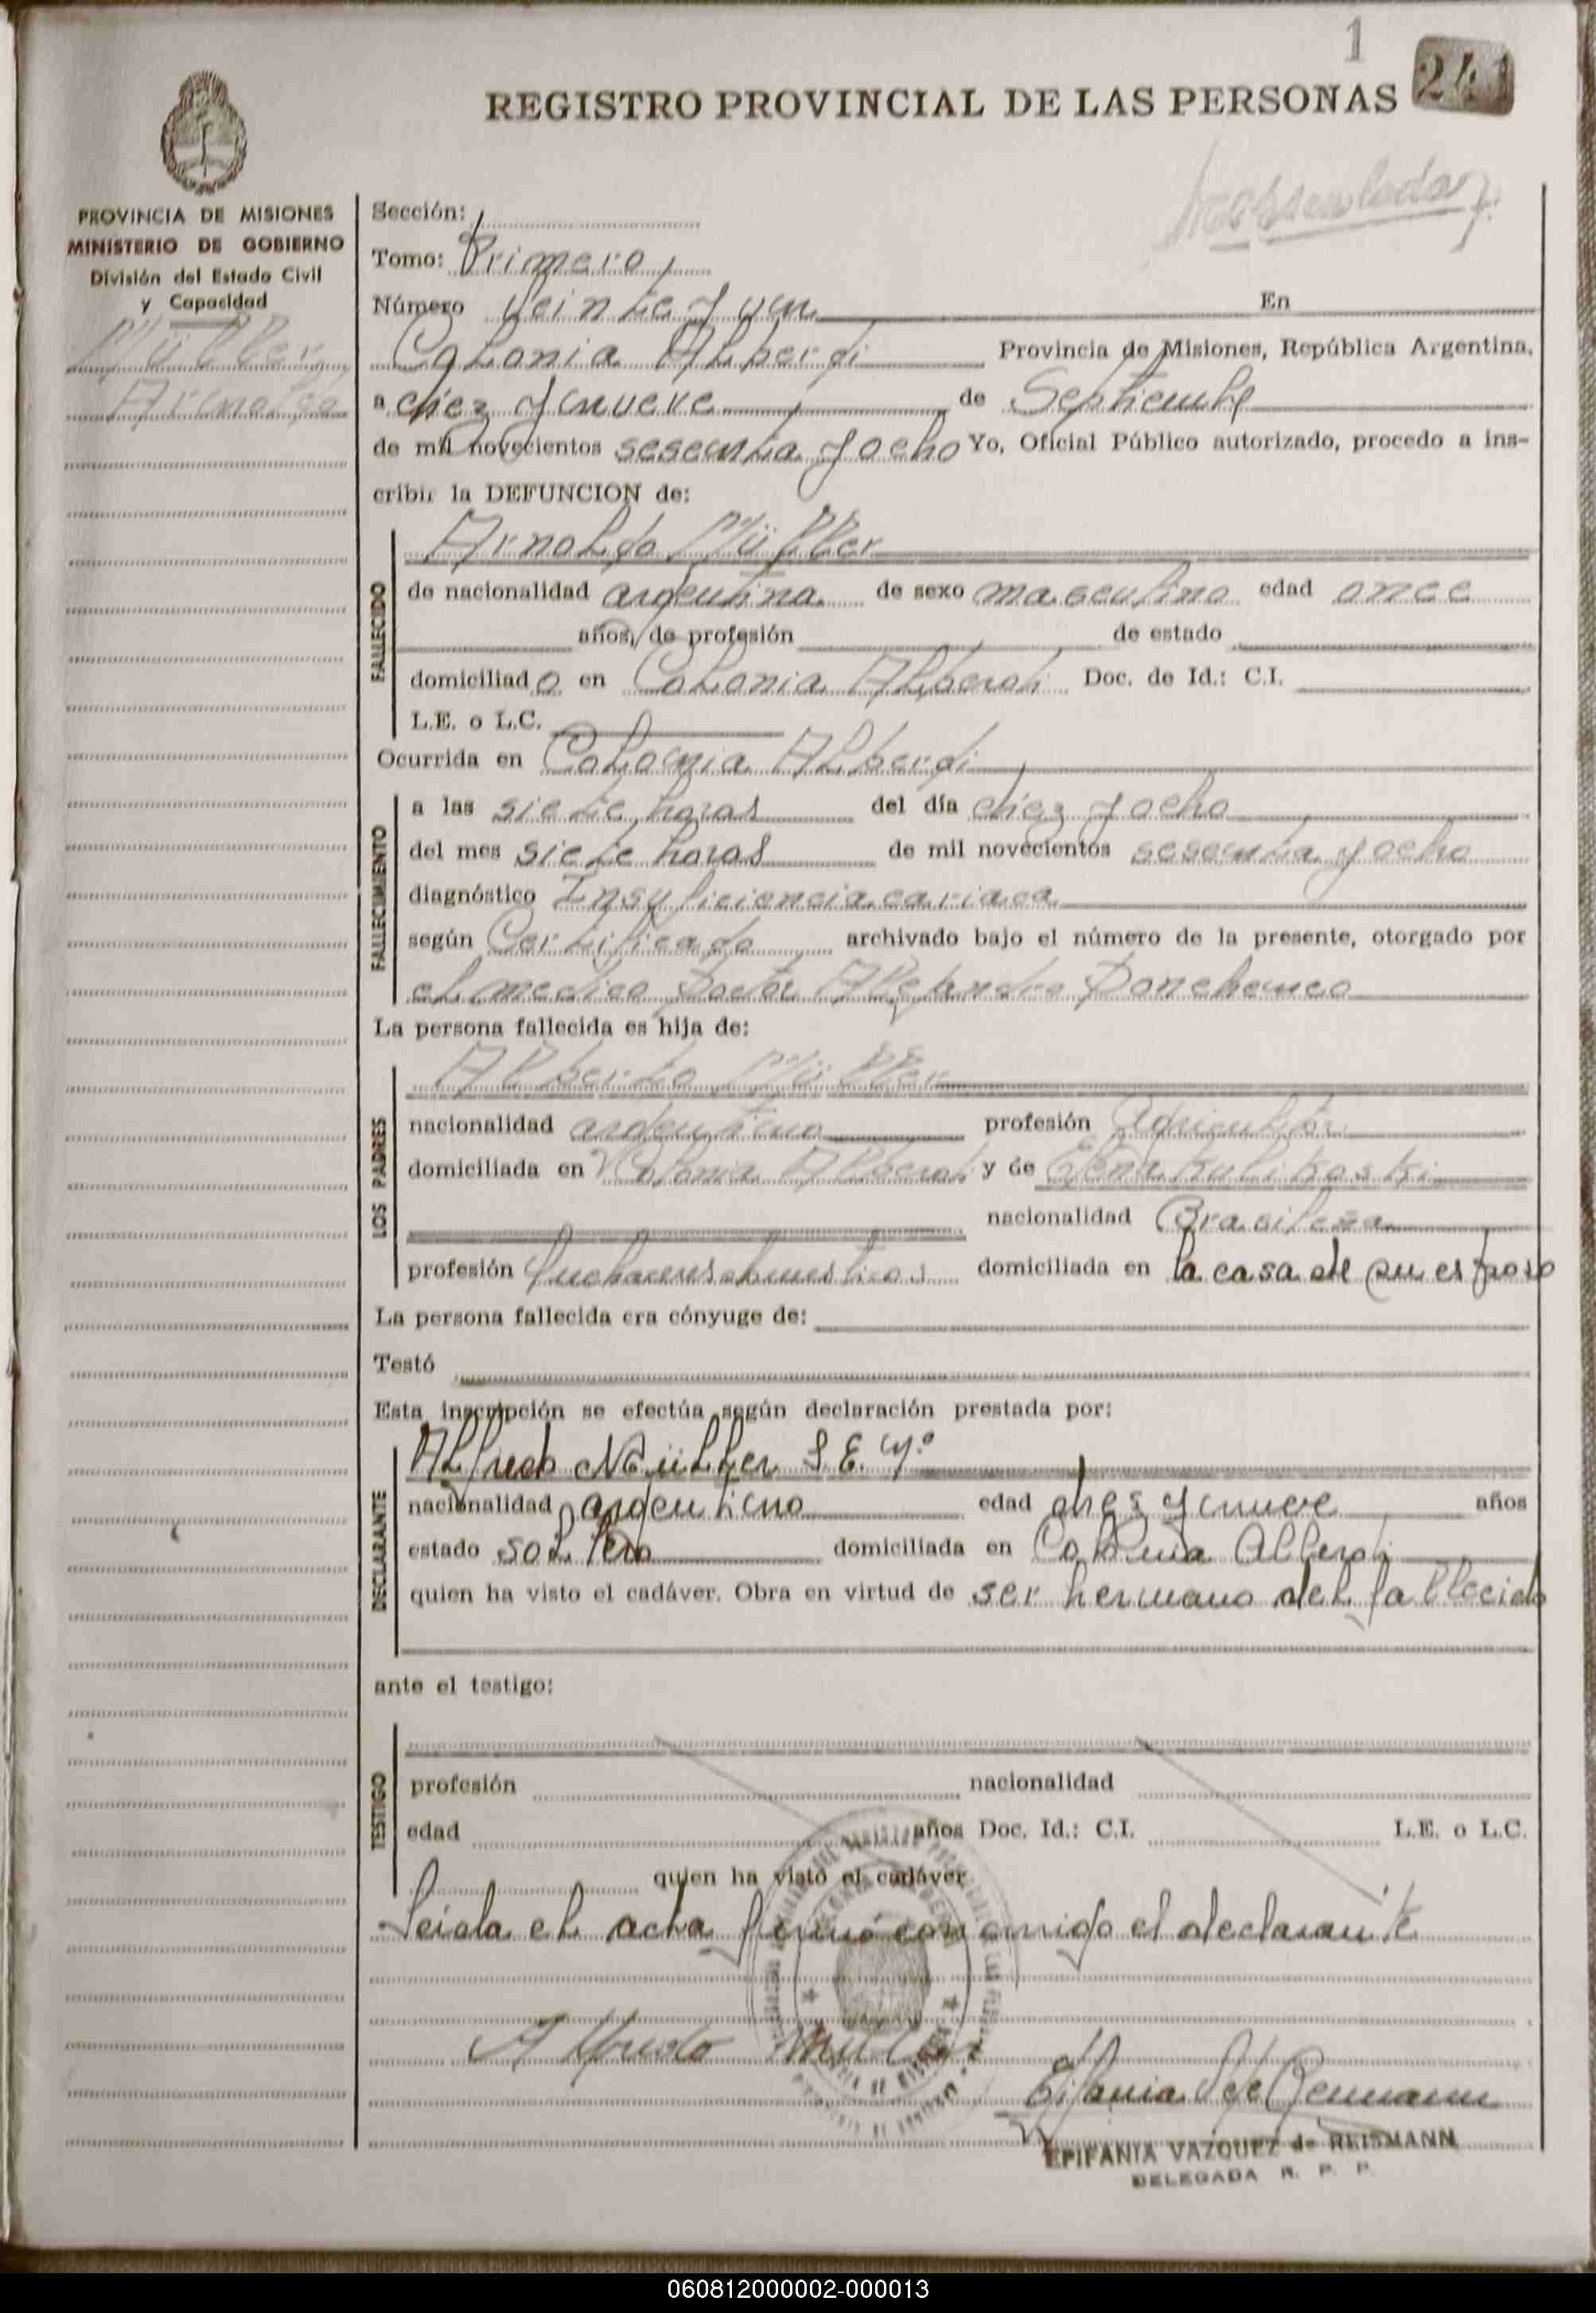 1
241
REGISTRO PROVINCIAL DE LAS PERSONAS
PROVINCIA DE MISIONES
MINISTERIO DE GOBIERNO
División del Estado Civil
y Capacidad
Müller
Arnoldo
Sección:
Tomo: Primero
Número veinte y un En
Colonia Alberdi Provincia de Misiones, República Argentina,
a diez y nueve de Septiembre
de mil novecientos sesenta y ocho Yo, Oficial Público autorizado, procedo a ins-
cribir la DEFUNCION de:
FALLECIDO
Arnoldo Müller
de nacionalidad argentina de sexo masculino edad once
años, de profesión de estado
domiciliado en Colonia Alberdi Doc. de Id.: C.I.
L.E. o L.C.
Ocurrida en Colonia Alberdi
FALLECIMIENTO
a las siete horas del día diez y ocho
del mes siete horas de mil novecientos sesenta y ocho
diagnóstico Insuficiencia cariaca
según Certificado archivado bajo el número de la presente, otorgado por
el medico Doctor Alejandro
La persona fallecida es hija de:
LOS PADRES
Alberto Müller
nacionalidad argentino profesión Agricultor
domiciliada en Colonia Alberdi y de Elena
nacionalidad Brasileña
profesión domiciliada en la casa de su esposo
La persona fallecida era cónyuge de:
Testó
Esta inscripción se efectúa según declaración prestada por:
DECLARANTE
Alfredo Müller L.E. Nº
nacionalidad argentino edad diez y nueve años
estado soltero domiciliada en Colonia Alberdi
quien ha visto el cadáver. Obra en virtud de ser hermano del fallecido
ante el testigo:
TESTIGO
profesión nacionalidad
edad años Doc. Id.: C.I. L.E. o L.C.
quien ha visto el cadáver
Leída el acta firmó con migo el declarante
Alfredo Müller
Epifania V. de Reismann
EPIFANIA VAZQUEZ de REISMANN
DELEGADA R. P. P.
060812000002-000013